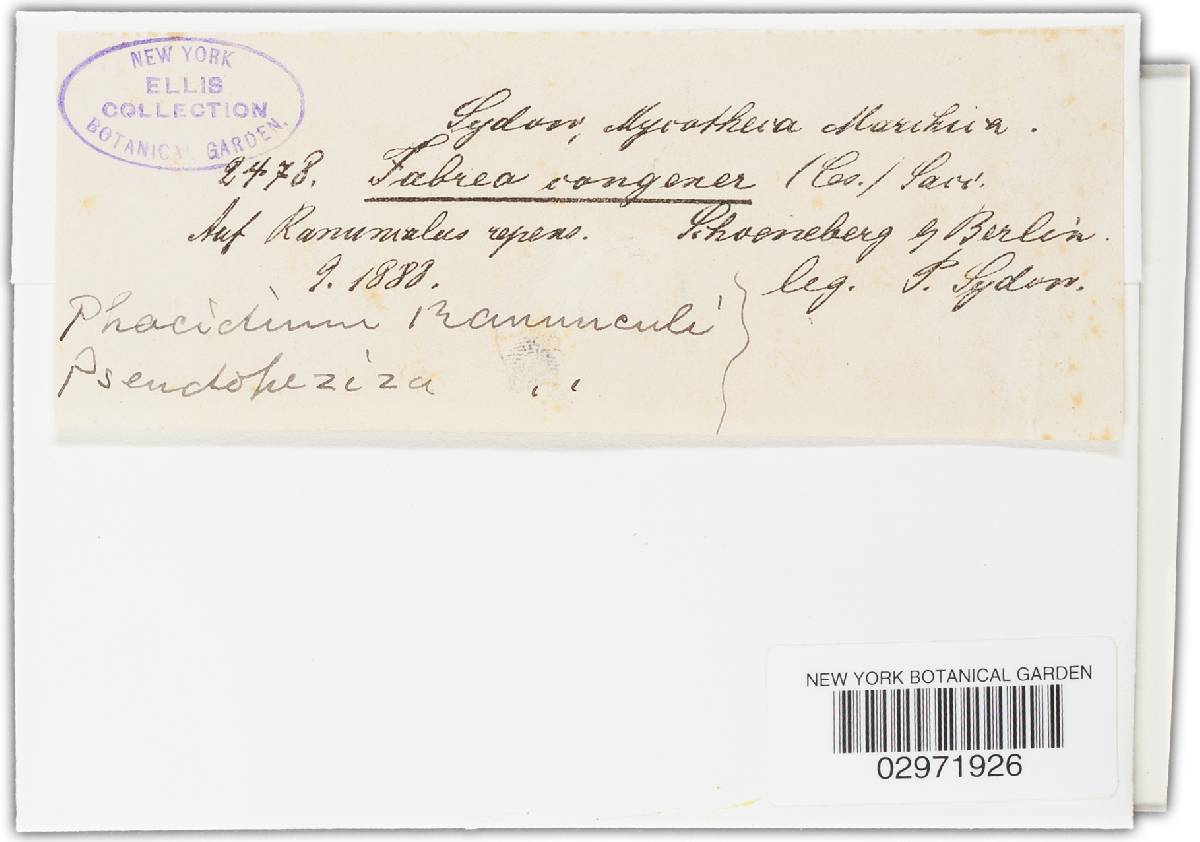 NEW YORK
ELLIS
COLLECTION
BOTANICAL GARDEN.
Sydow, Mycotheca Marchica.
2478. Fabrea congener (Ces.) Sacc.
Auf Ranunculus repens. Schoeneberg b/Berlin.
9. 1888. leg. P. Sydow.
Phacidium Ranunculi
Pseudopeziza " 
NEW YORK BOTANICAL GARDEN
02971926